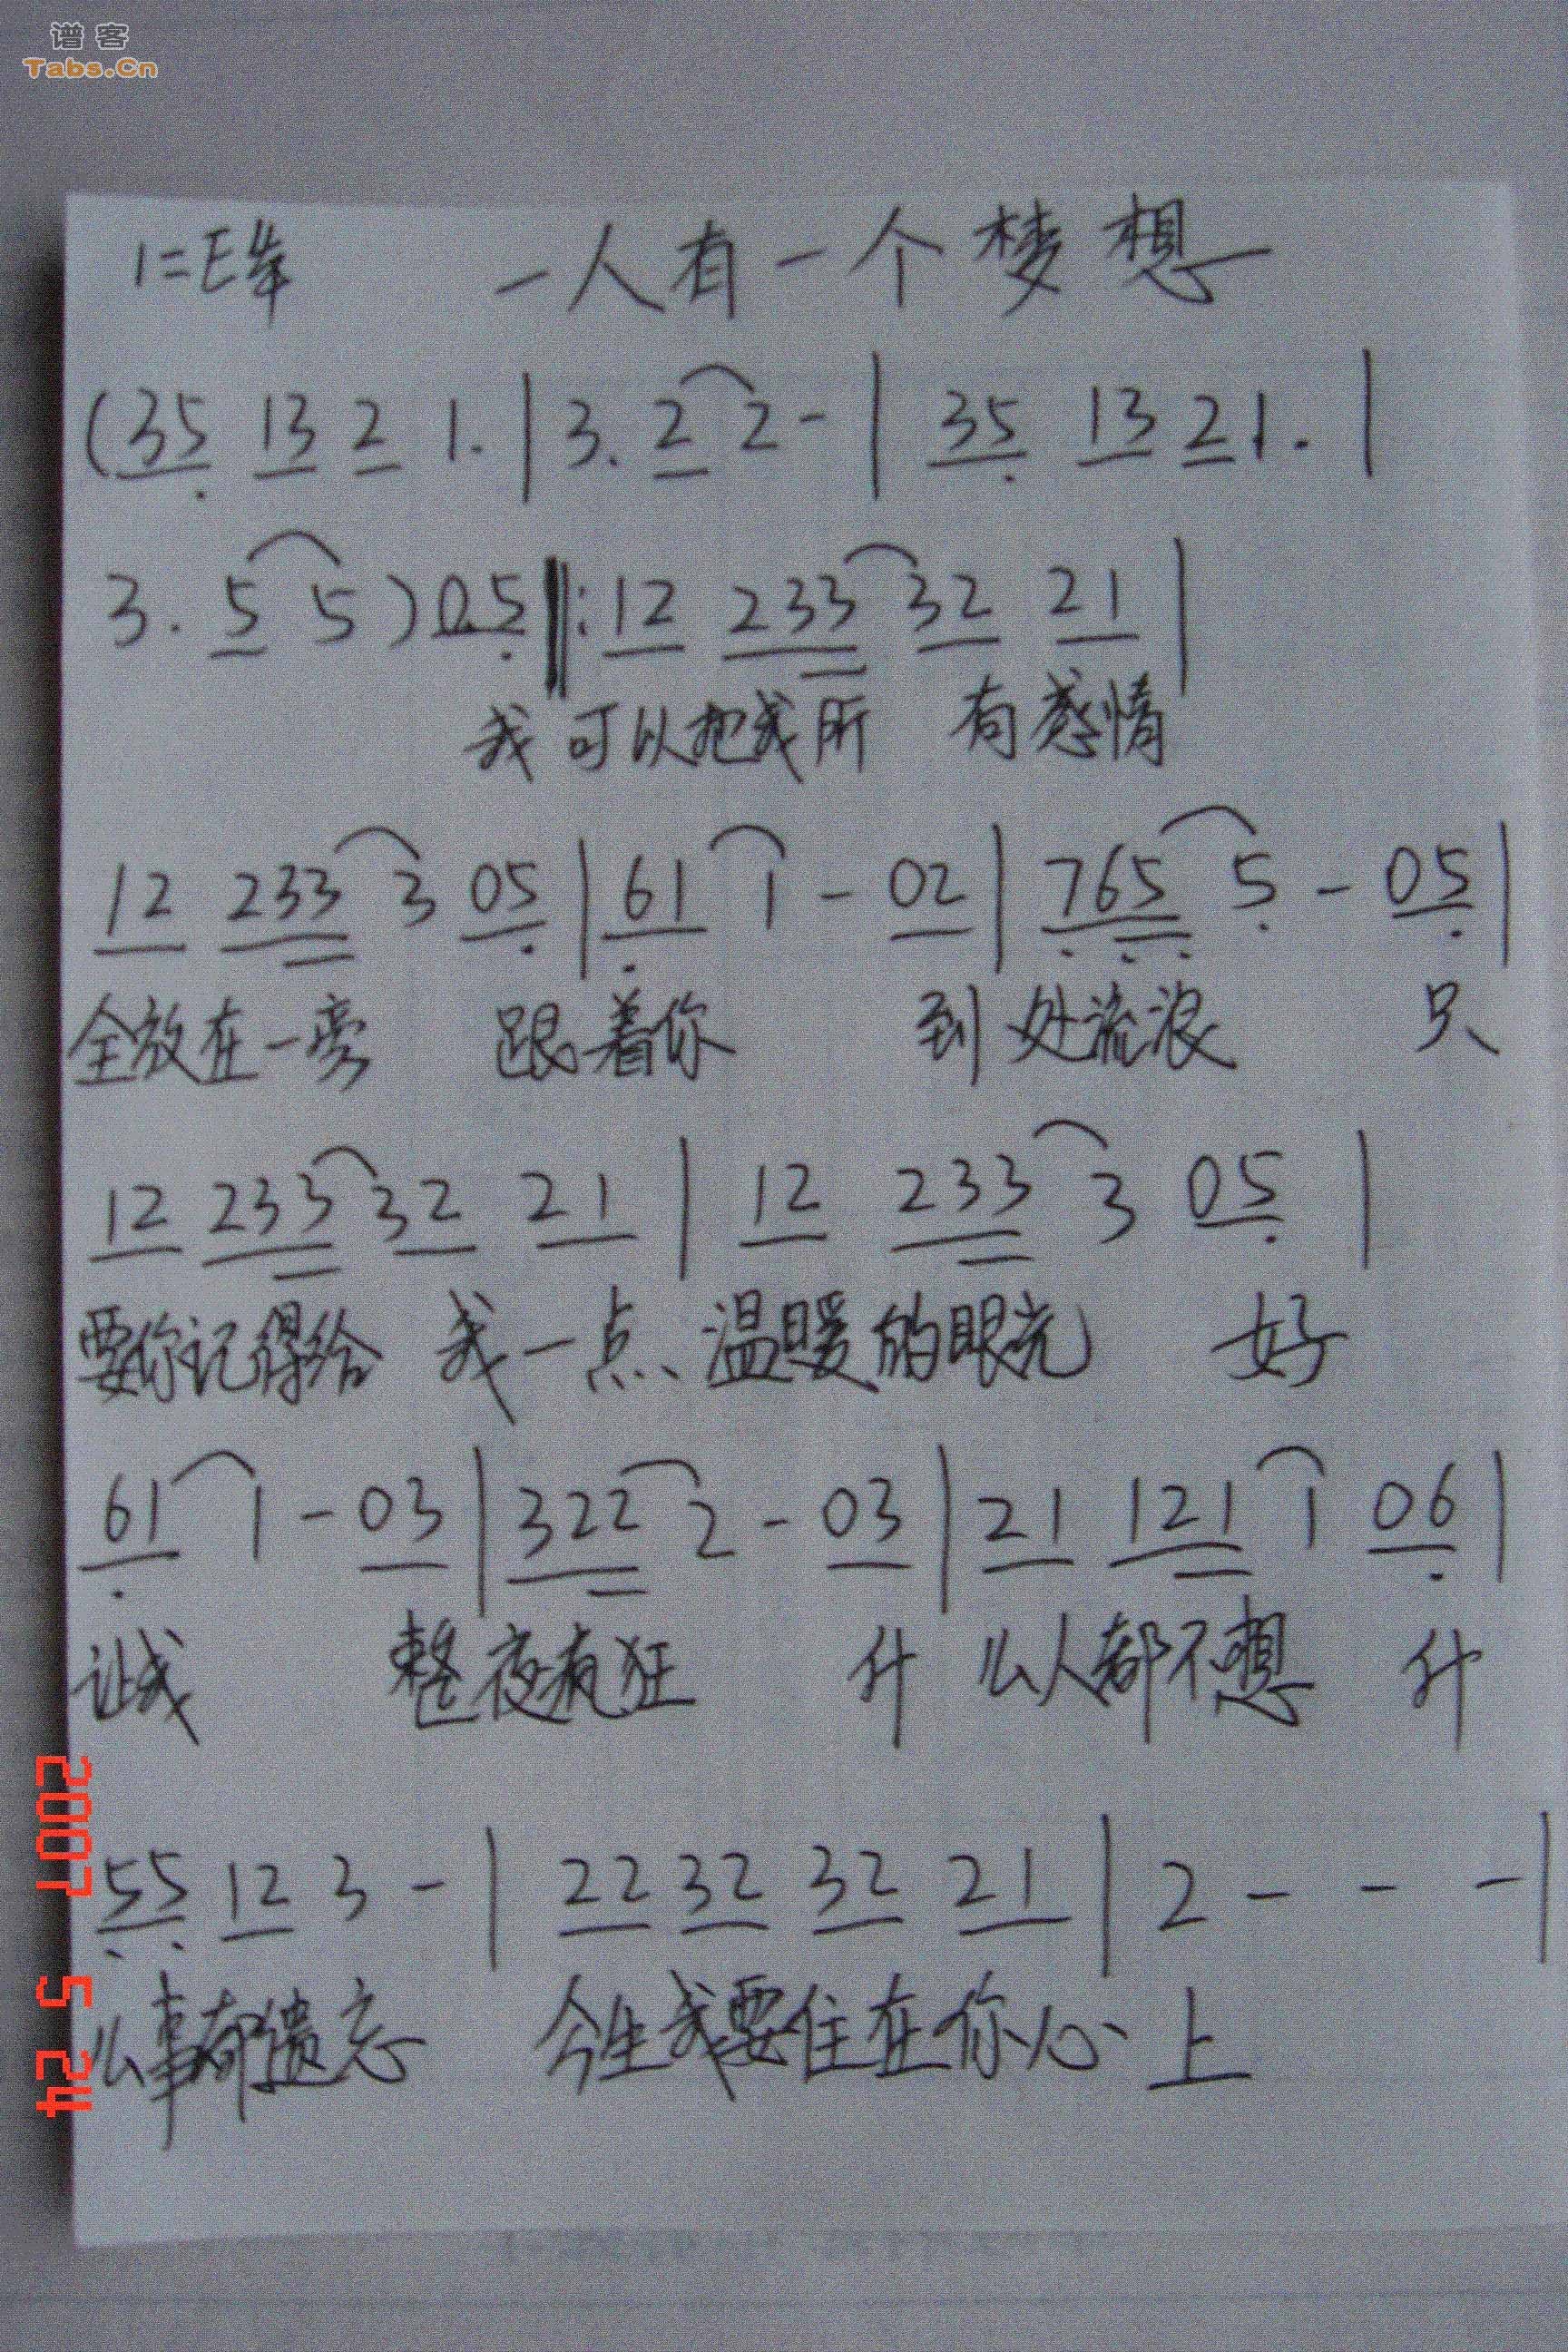 谱客
Tabs.Cn
1=E 一人有一个梦想
(35 13 2 1. | 3. 2 2 - | 35 13 21. |
3. 5 5 ) 0.5 ‖: 12 233 32 21 |
我 可以把我所 有感情
12 233 3 05 | 61 1 - 02 | 765 5 - 05 |
全放在一旁 跟着你 到处流浪 只
12 233 32 21 | 12 233 3 05 |
要你记得给 我一点 温暖的眼光 好
61 1 - 03 | 322 2 - 03 | 21 121 1 06 |
让我 整夜疯狂 什 么人都不想 什
55 12 3 - | 22 32 32 21 | 2 - - - |
么事都遗忘 今生我要住在你心 上
2007 5 24